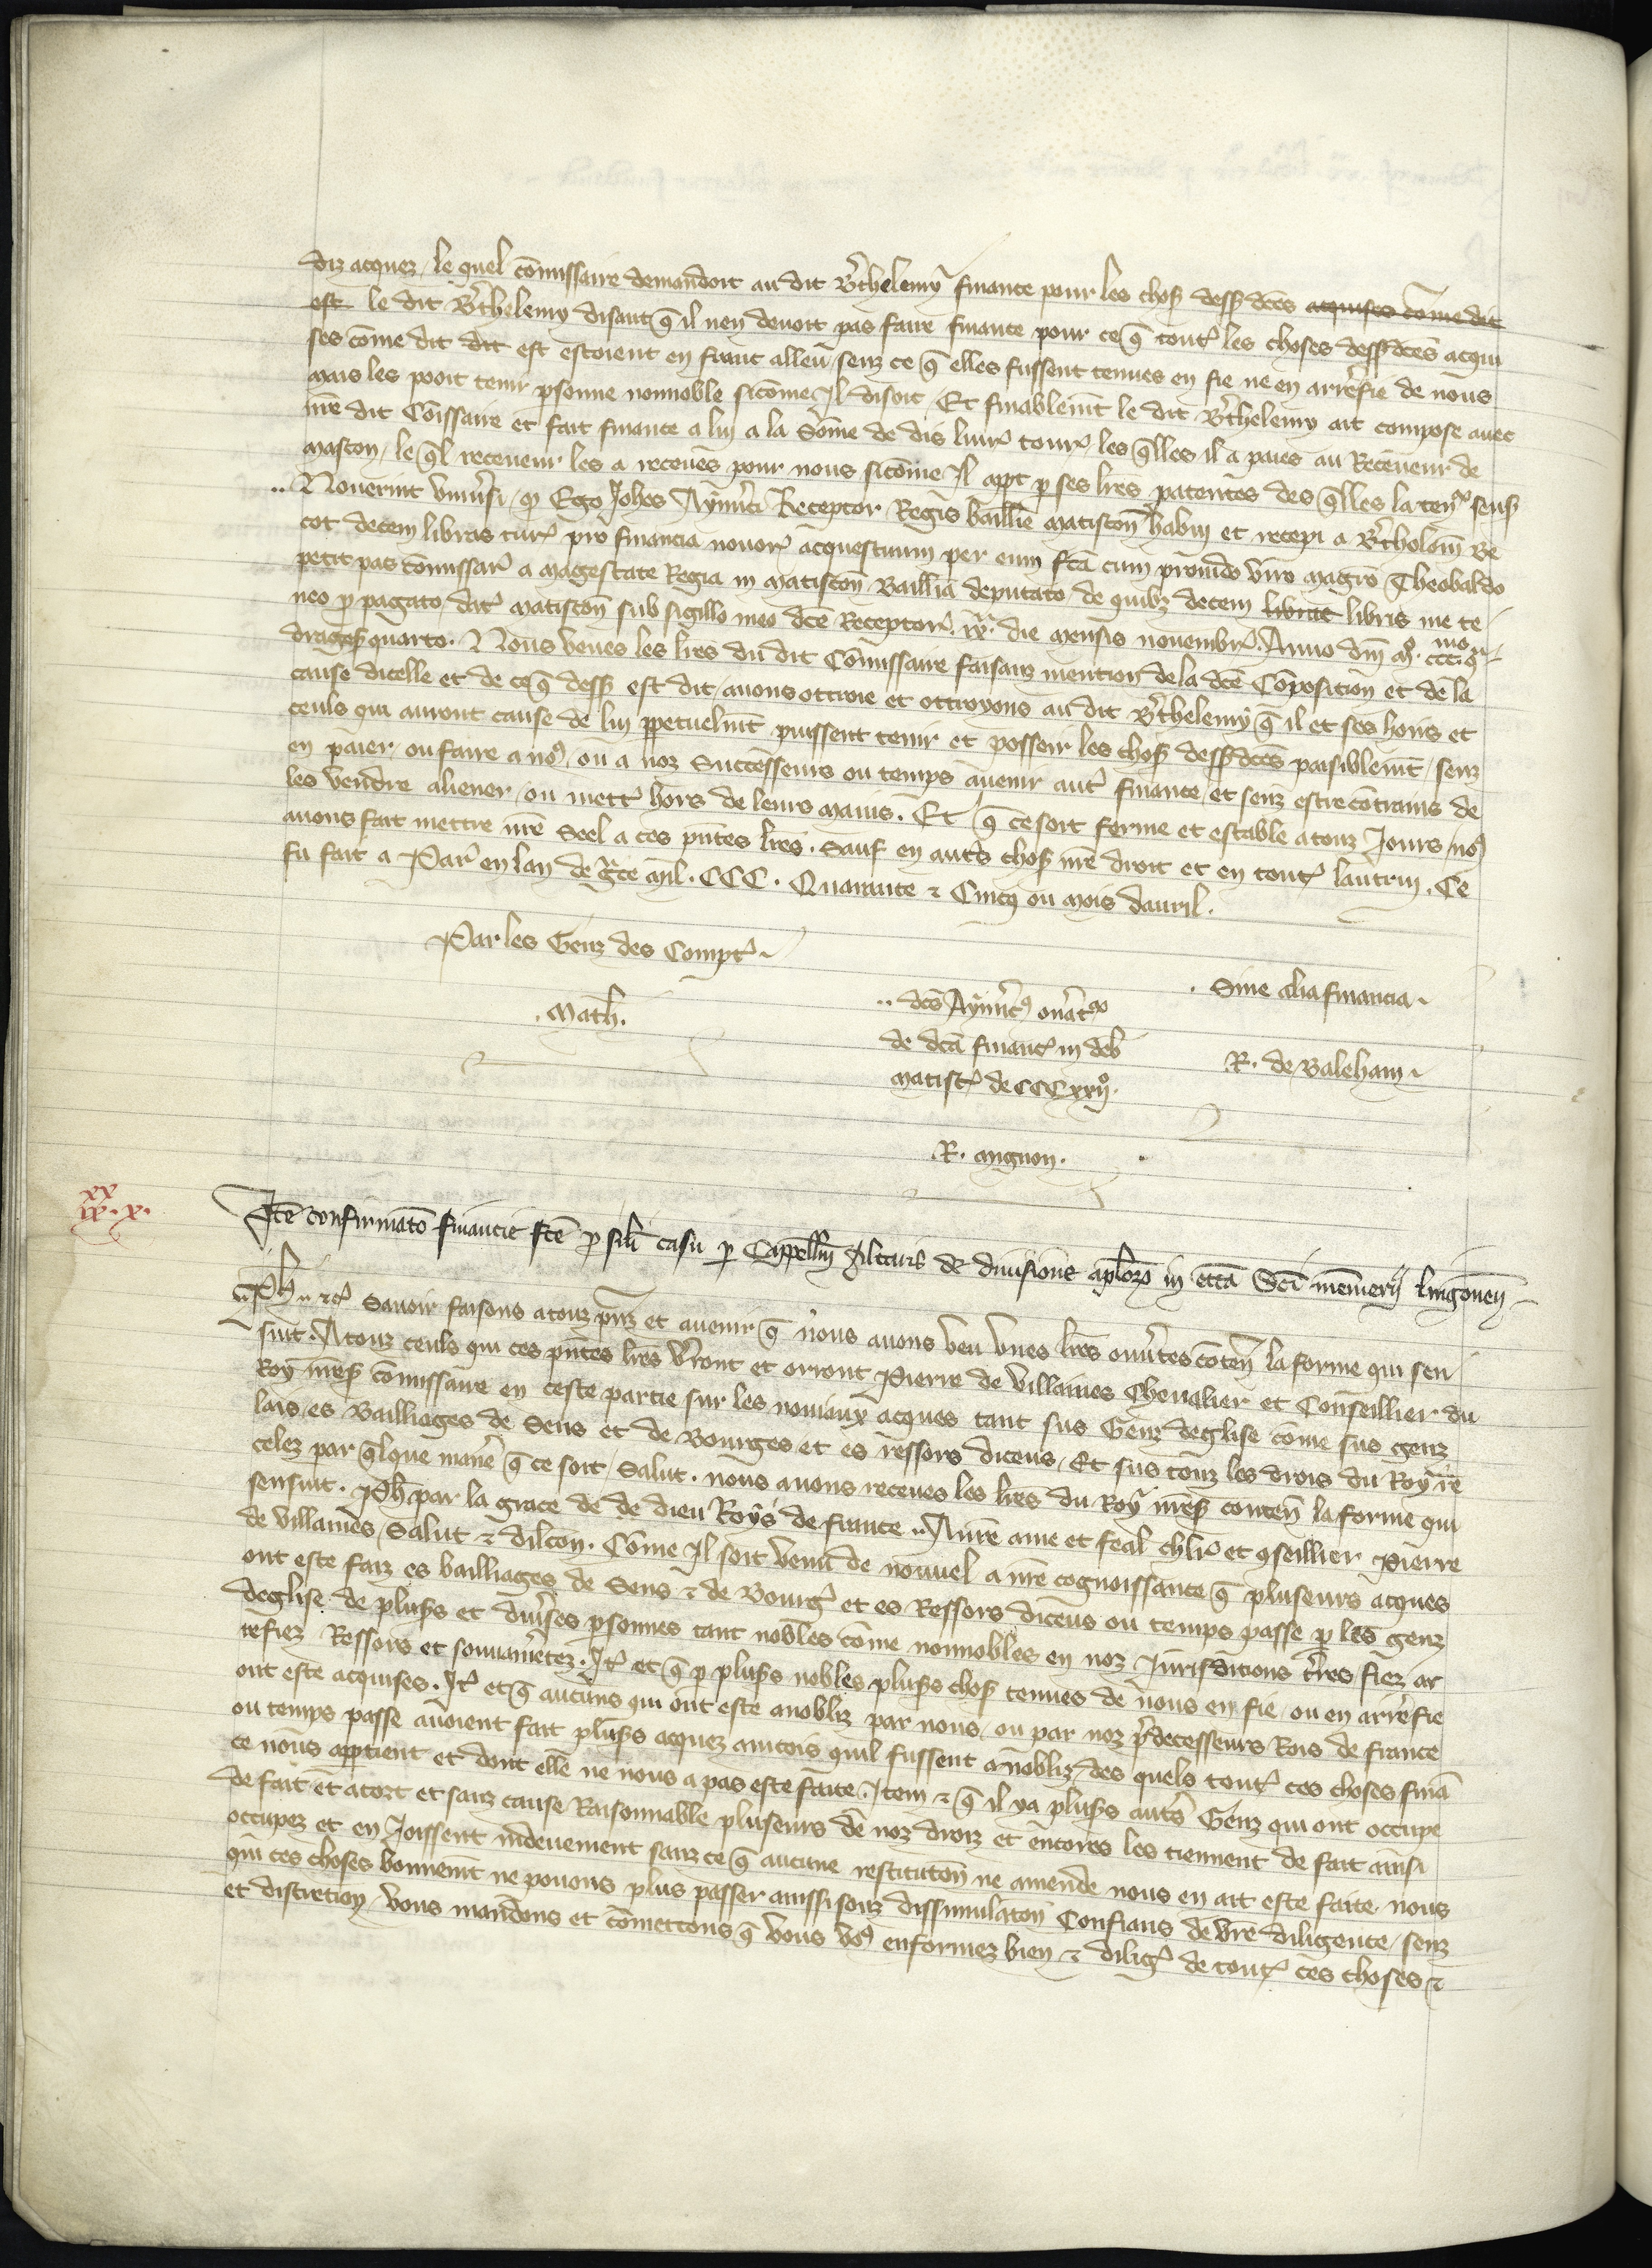 diz acquez, le quel cōmissaire demandoit au dit B'thelemy finance pour les chos̄ dess̄dc̄es acquises cōme dit
est le dit B'thelemy disant q̄ il nen devoit pas faire finance pour ce q̄ tout' les choses dess̄dc̄es acqui
ses cōme dit dit est estoient en franc alleu senz ce q̄ elles fussent tenues en fie ne en arrefie de nous
mais les pooit tenir p̱sonne nonnoble sicōme Jl disoit, Et finablem̄t le dit B'thelemy ait compose avec
nr̄e dit Cōissaire et fait finance a lui a la Sōme de dis livr' tour' les q̄lles il a paies au Receveur de
Mascon, le q̄l receveur les a receues pour nous sicōme Jl app̱t p̱ ses lr̄es patentes des q̄lles la ten' sens'
.. Noverint univ'si, q' Ego Joh̄es Aym'ici Receptor Regis baillie matiscon̄ habui et recepi a B'tholom̄ Be
cot decem libras tur' pro financia novor' acquestuum per eum fc̄a cum provido viro magr̄o Theobaldo
petit pas cōmissar' a magestate Regia in matiscon̄ Baillia deputato, de quib' decem librat libris me te
neo p̱ pagato, dat' matiscon̄ sub sigillo meo dc̄e Receptor' xx̊. die mensis novembr'. Anno dn̄i mͦ. cccͦ. qͣ
drages̄ quarto. Nous veues les lr̄es du dit Cōmissaire faisanz mention de la dc̄e Cōposition et de la
cause dicelle et de ce q̄ dess' est dit, avons ottroie et ottroyons au dit B'thelemy q̄ il et ses hoirs et
ceuls qui auront cause de lui p̱petuelm̄t puissent tenir et posseir les chos̄ dess̄dc̄es paisiblem̄t, senz
en paier, ou faire a no', ou a noz Successeurs ou temps avenir aut' finance, et senz estre cōtrains de
les vendre aliener, ou mett' hors de leurs mains. Et q̄ ce soit ferme et estable a touz Jours, no'
avons fait mettre nr̄e Seel a ces pn̄tes lr̄es. Sauf en aut's chos̄ nr̄e droit et en tout' lautrui. Ce
fu fait a Par' en lan de gr̄ce mil. CCC. Quarante & Cincq ou mois davril.
Par les Genz des Compt'
. Math.
.. dc̄s Aym'ic' on'at'
de dc̄a financ' in deb'
matisc' de CCCxxijͦ.
R. mignon.
. Sine alia financia.
R. de Baleham.
xx
ix. x.
Jtē confirmatō financie fc̄e p̱ sil̄i casu p̱ Cappell̄m Altaris de divisione ap̄lorꝝ in ecc̄a Sc̄i mēmerij lingonen̄
Ph̄ .. &c' Savoir faisons a touz pn̄z et avenir q̄ nous avons veu unes lr̄es ouv'tes cōten̄ la forme qui sen
suit. A touz ceuls qui ces pn̄tes lr̄es v'ront et orront Pierre de Villaines Chevalier et Conseillier du
Roy nr̄es̄ Cōmissaire en ceste partie sur les noviaux acques tant sus Genz deglise cōme sus genz
lais, es Bailliages de Sens et de Bourges et es ressors diceus, Et sus touz les drois du Roy re
celez par q̄lque man'e q̄ ce soit, Salut. nous avons receues les lr̄es du Roy nr̄es̄ conten̄ la forme qui
sensuit. Ph̄ par la grace de de dieu Roys de france .. A nr̄e ame et feal chl̄r et ꝯseillier Pierre
de villaines, Salut & dilcōn. Cōme Jl soit venu de nouvel a nr̄e cognoissance q̄ pluseurs acques
ont este faiz es bailliages de Sens & de Bourg' et es Ressors diceus ou temps passe p̱ les genz
deglise de plus's et div'ses p̱sonnes tant nobles cōme nonnobles en noz Juridictions t'res fiez ar
refiez Ressors et souvain'etez. Jt' et q̄ p̱ plus's nobles plus's chos̄ tenues de nous en fie, ou en arrefie
ont este acquises. Jt' et q̄ aucuns qui ont este anobliz par nous, ou par noz p̄decesseurs Rois de france
ou temps passe avoient fait plus's acquez aincois quil fussent anobliz, des quels tout' ces choses finā
ce nous app̱tient et dont elle ne nous a pas este faite. Jtem & q̄ il ya plus's aut's Genz qui ont occupe
de fait et a tort et sanz cause Raisonnable pluseurs de noz droiz et encores les tiennent de fait ainsi
occupez et en Joissent indeuement sanz ce q̄ aucune restitutōn ne amende nous en ait este faite, nous
qui ces choses bonnem̄t ne povons plus passer aussi souz dissimulatōn Confians de vr̄e diligence, senz
et discretion, vous mandons et cōmettons q̄ vous vo' enformez bien & dilig' de tout' ces choses &